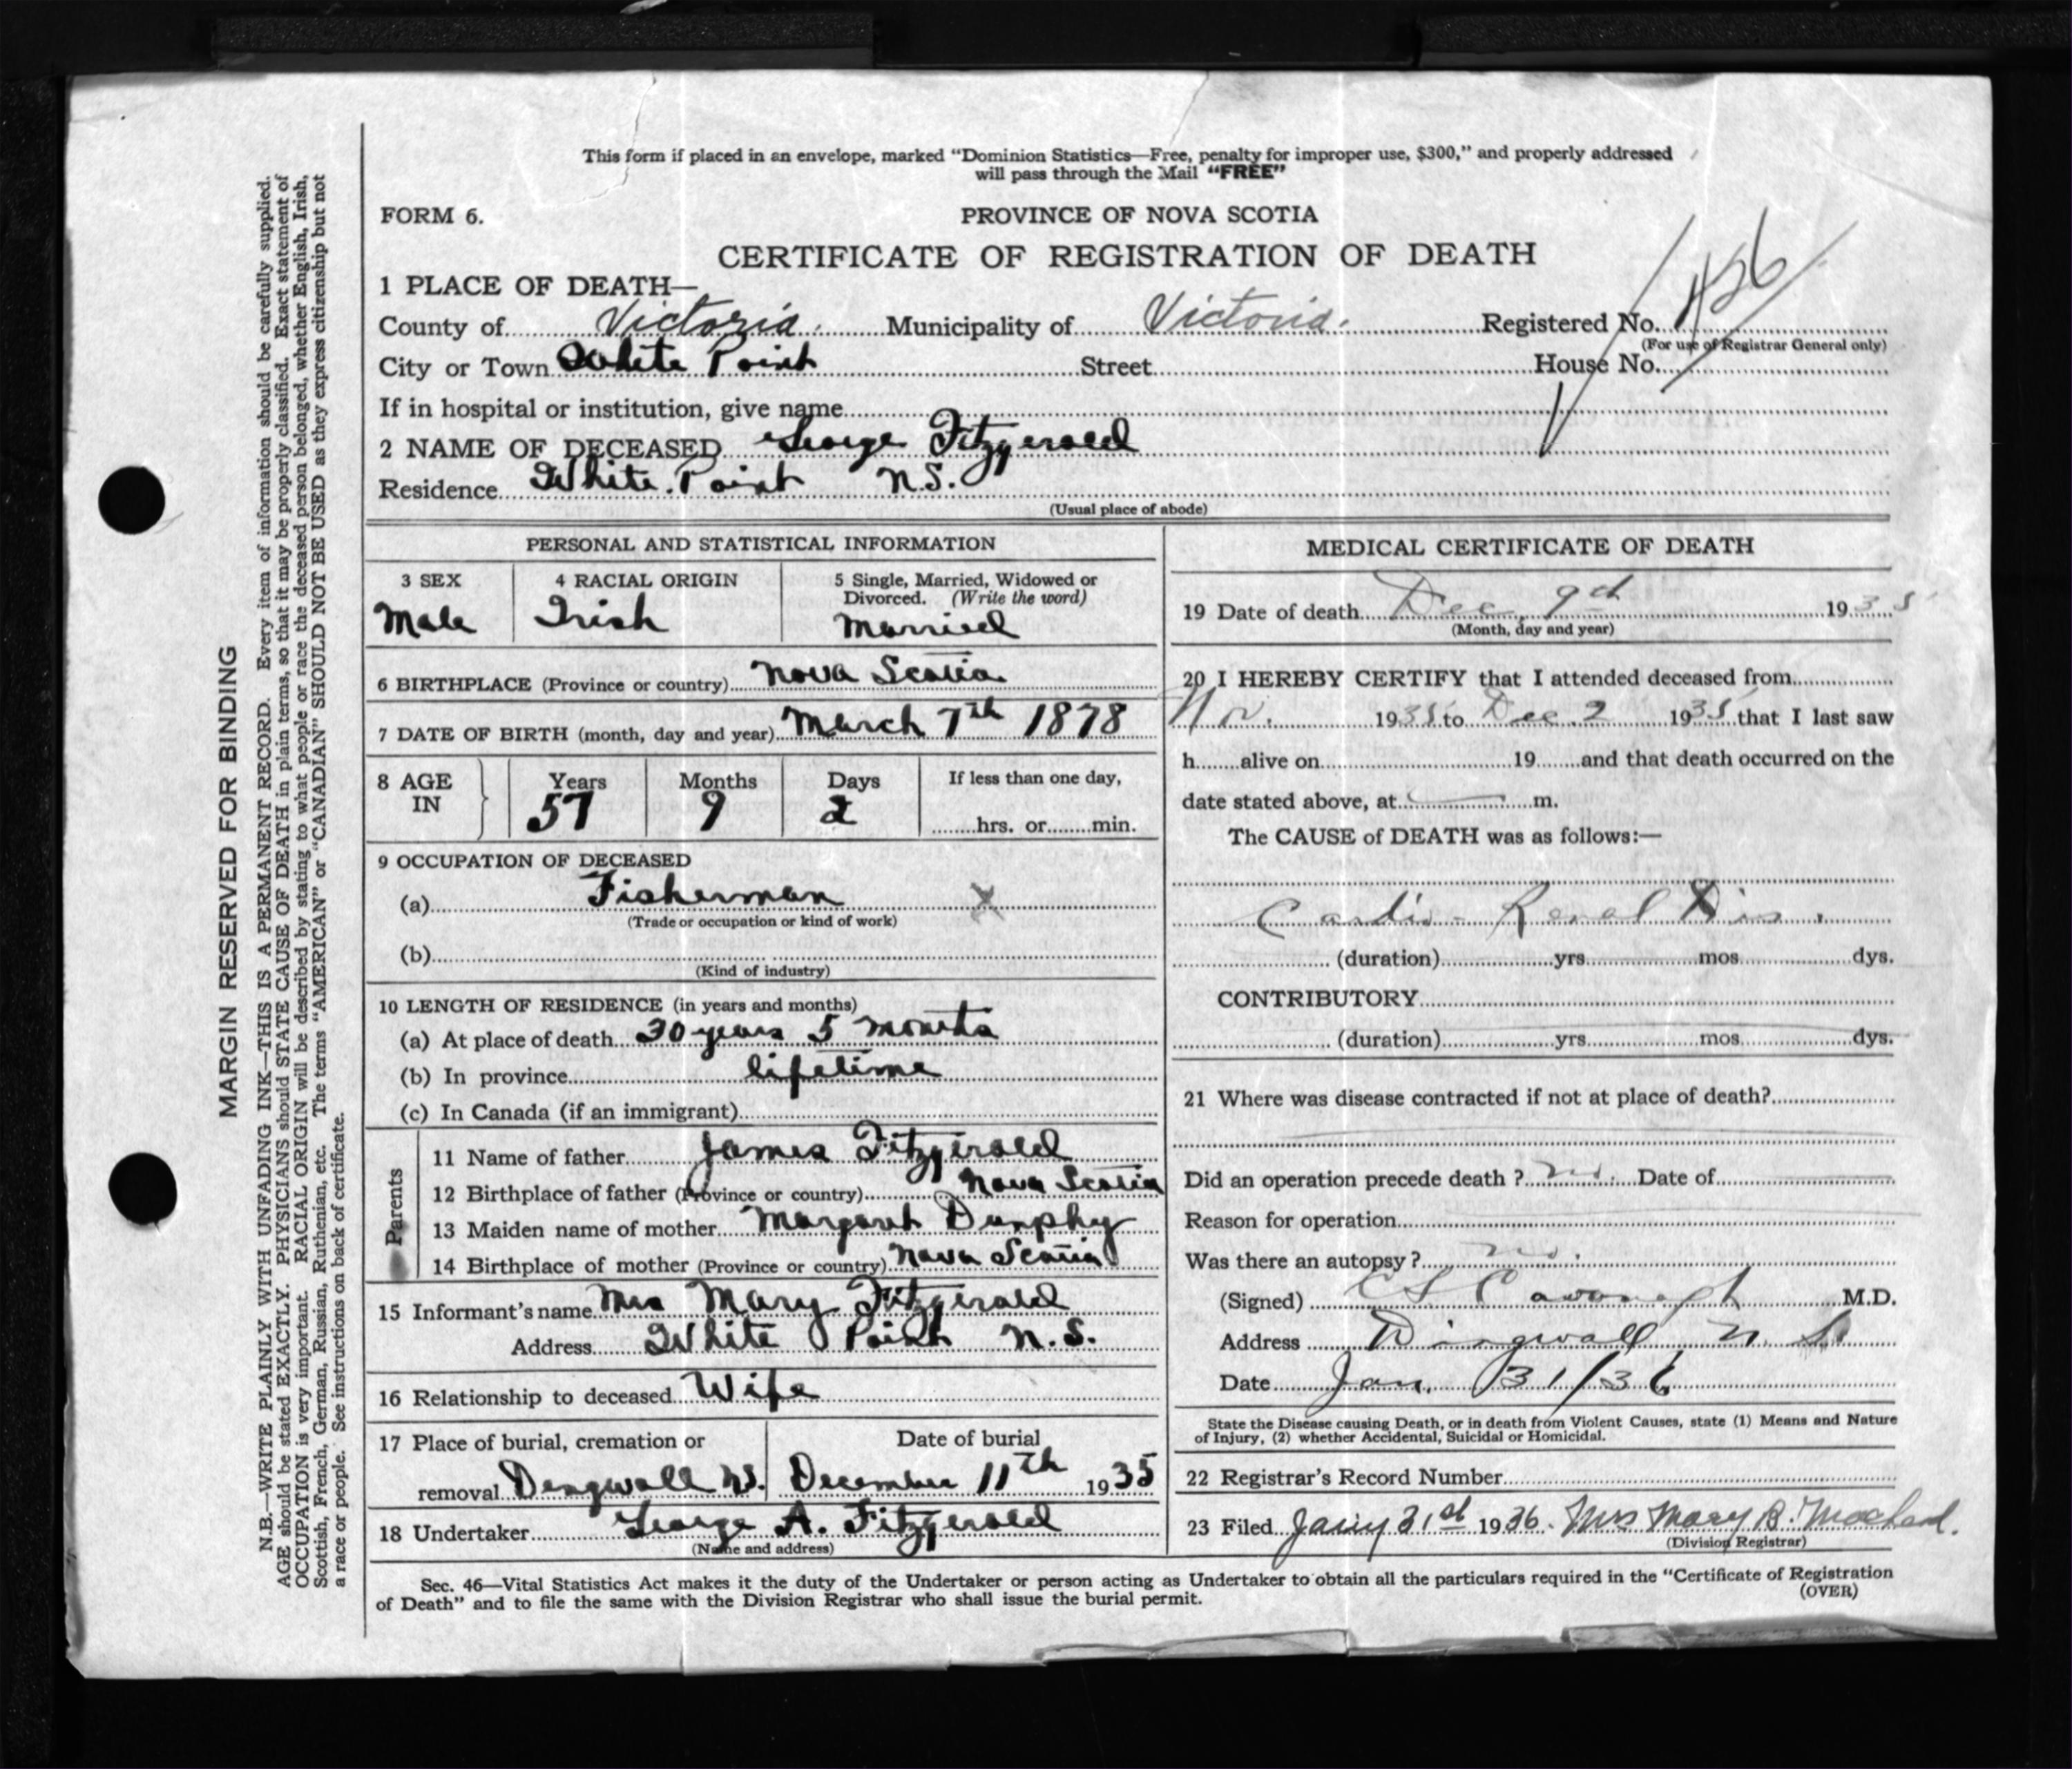 This form if placed in an envelope, marked "Dominion Statistics—Free, penalty for improper use, $300," and properly addressed
will pass through the Mail "FREE"
FORM 6.
PROVINCE OF NOVA SCOTIA
CERTIFICATE OF REGISTRATION OF DEATH
1 PLACE OF DEATH—
County of Victoria. Municipality of Victoria. Registered No.
(For use of Registrar General only)
City or Town White Point Street House No.
If in hospital or institution, give name
2 NAME OF DECEASED George Fitzgerald
Residence White Point N.S.
(Usual place of abode)
PERSONAL AND STATISTICAL INFORMATION
3 SEX 4 RACIAL ORIGIN 5 Single, Married, Widowed or
Divorced. (Write the word)
Male Irish Married
6 BIRTHPLACE (Province or country) Nova Scotia
7 DATE OF BIRTH (month, day and year) March 7th 1878
8 AGE IN Years Months Days If less than one day,
57 9 2 hrs. or min.
9 OCCUPATION OF DECEASED
(a) Fisherman X
(Trade or occupation or kind of work)
(b)
(Kind of industry)
10 LENGTH OF RESIDENCE (in years and months)
(a) At place of death 30 years 5 months
(b) In province lifetime
(c) In Canada (if an immigrant)
Parents
11 Name of father James Fitzgerald
12 Birthplace of father (Province or country) Nova Scotia
13 Maiden name of mother Margaret Dunphy
14 Birthplace of mother (Province or country) Nova Scotia
15 Informant's name Mrs Mary Fitzgerald
Address White Point N.S.
16 Relationship to deceased Wife
17 Place of burial, cremation or Date of burial
removal Dingwall N.S. December 11th 1935
18 Undertaker George A. Fitzgerald
(Name and address)
MEDICAL CERTIFICATE OF DEATH
19 Date of death Dec 9th 1935
(Month, day and year)
20 I HEREBY CERTIFY that I attended deceased from
Nov. 1935 to Dec. 2 1935 that I last saw
h alive on 19 and that death occurred on the
date stated above, at — m.
The CAUSE of DEATH was as follows:—
Cardio-Renal Dis.
(duration) yrs mos dys.
CONTRIBUTORY
(duration) yrs mos dys.
21 Where was disease contracted if not at place of death?
Did an operation precede death? no. Date of
Reason for operation
Was there an autopsy? no.
(Signed) C S Cavanagh M.D.
Address Dingwall N S
Date Jan. 31/36
State the Disease causing Death, or in death from Violent Causes, state (1) Means and Nature
of Injury, (2) whether Accidental, Suicidal or Homicidal.
22 Registrar's Record Number
23 Filed Jany 31st 1936. Mrs Mary B.
(Division Registrar)
Sec. 46—Vital Statistics Act makes it the duty of the Undertaker or person acting as Undertaker to obtain all the particulars required in the "Certificate of Registration
of Death" and to file the same with the Division Registrar who shall issue the burial permit.
(OVER)
MARGIN RESERVED FOR BINDING
N.B.—WRITE PLAINLY WITH UNFADING INK—THIS IS A PERMANENT RECORD. Every item of information should be carefully supplied.
AGE should be stated EXACTLY. PHYSICIANS should STATE CAUSE OF DEATH in plain terms, so that it may be properly classified. Exact statement of
OCCUPATION is very important. RACIAL ORIGIN will be described by stating to what people or race the deceased person belonged, whether English, Irish,
Scottish, French, German, Russian, Ruthenian, etc. The terms "AMERICAN" or "CANADIAN" SHOULD NOT BE USED as they express citizenship but not
a race or people. See instructions on back of certificate.